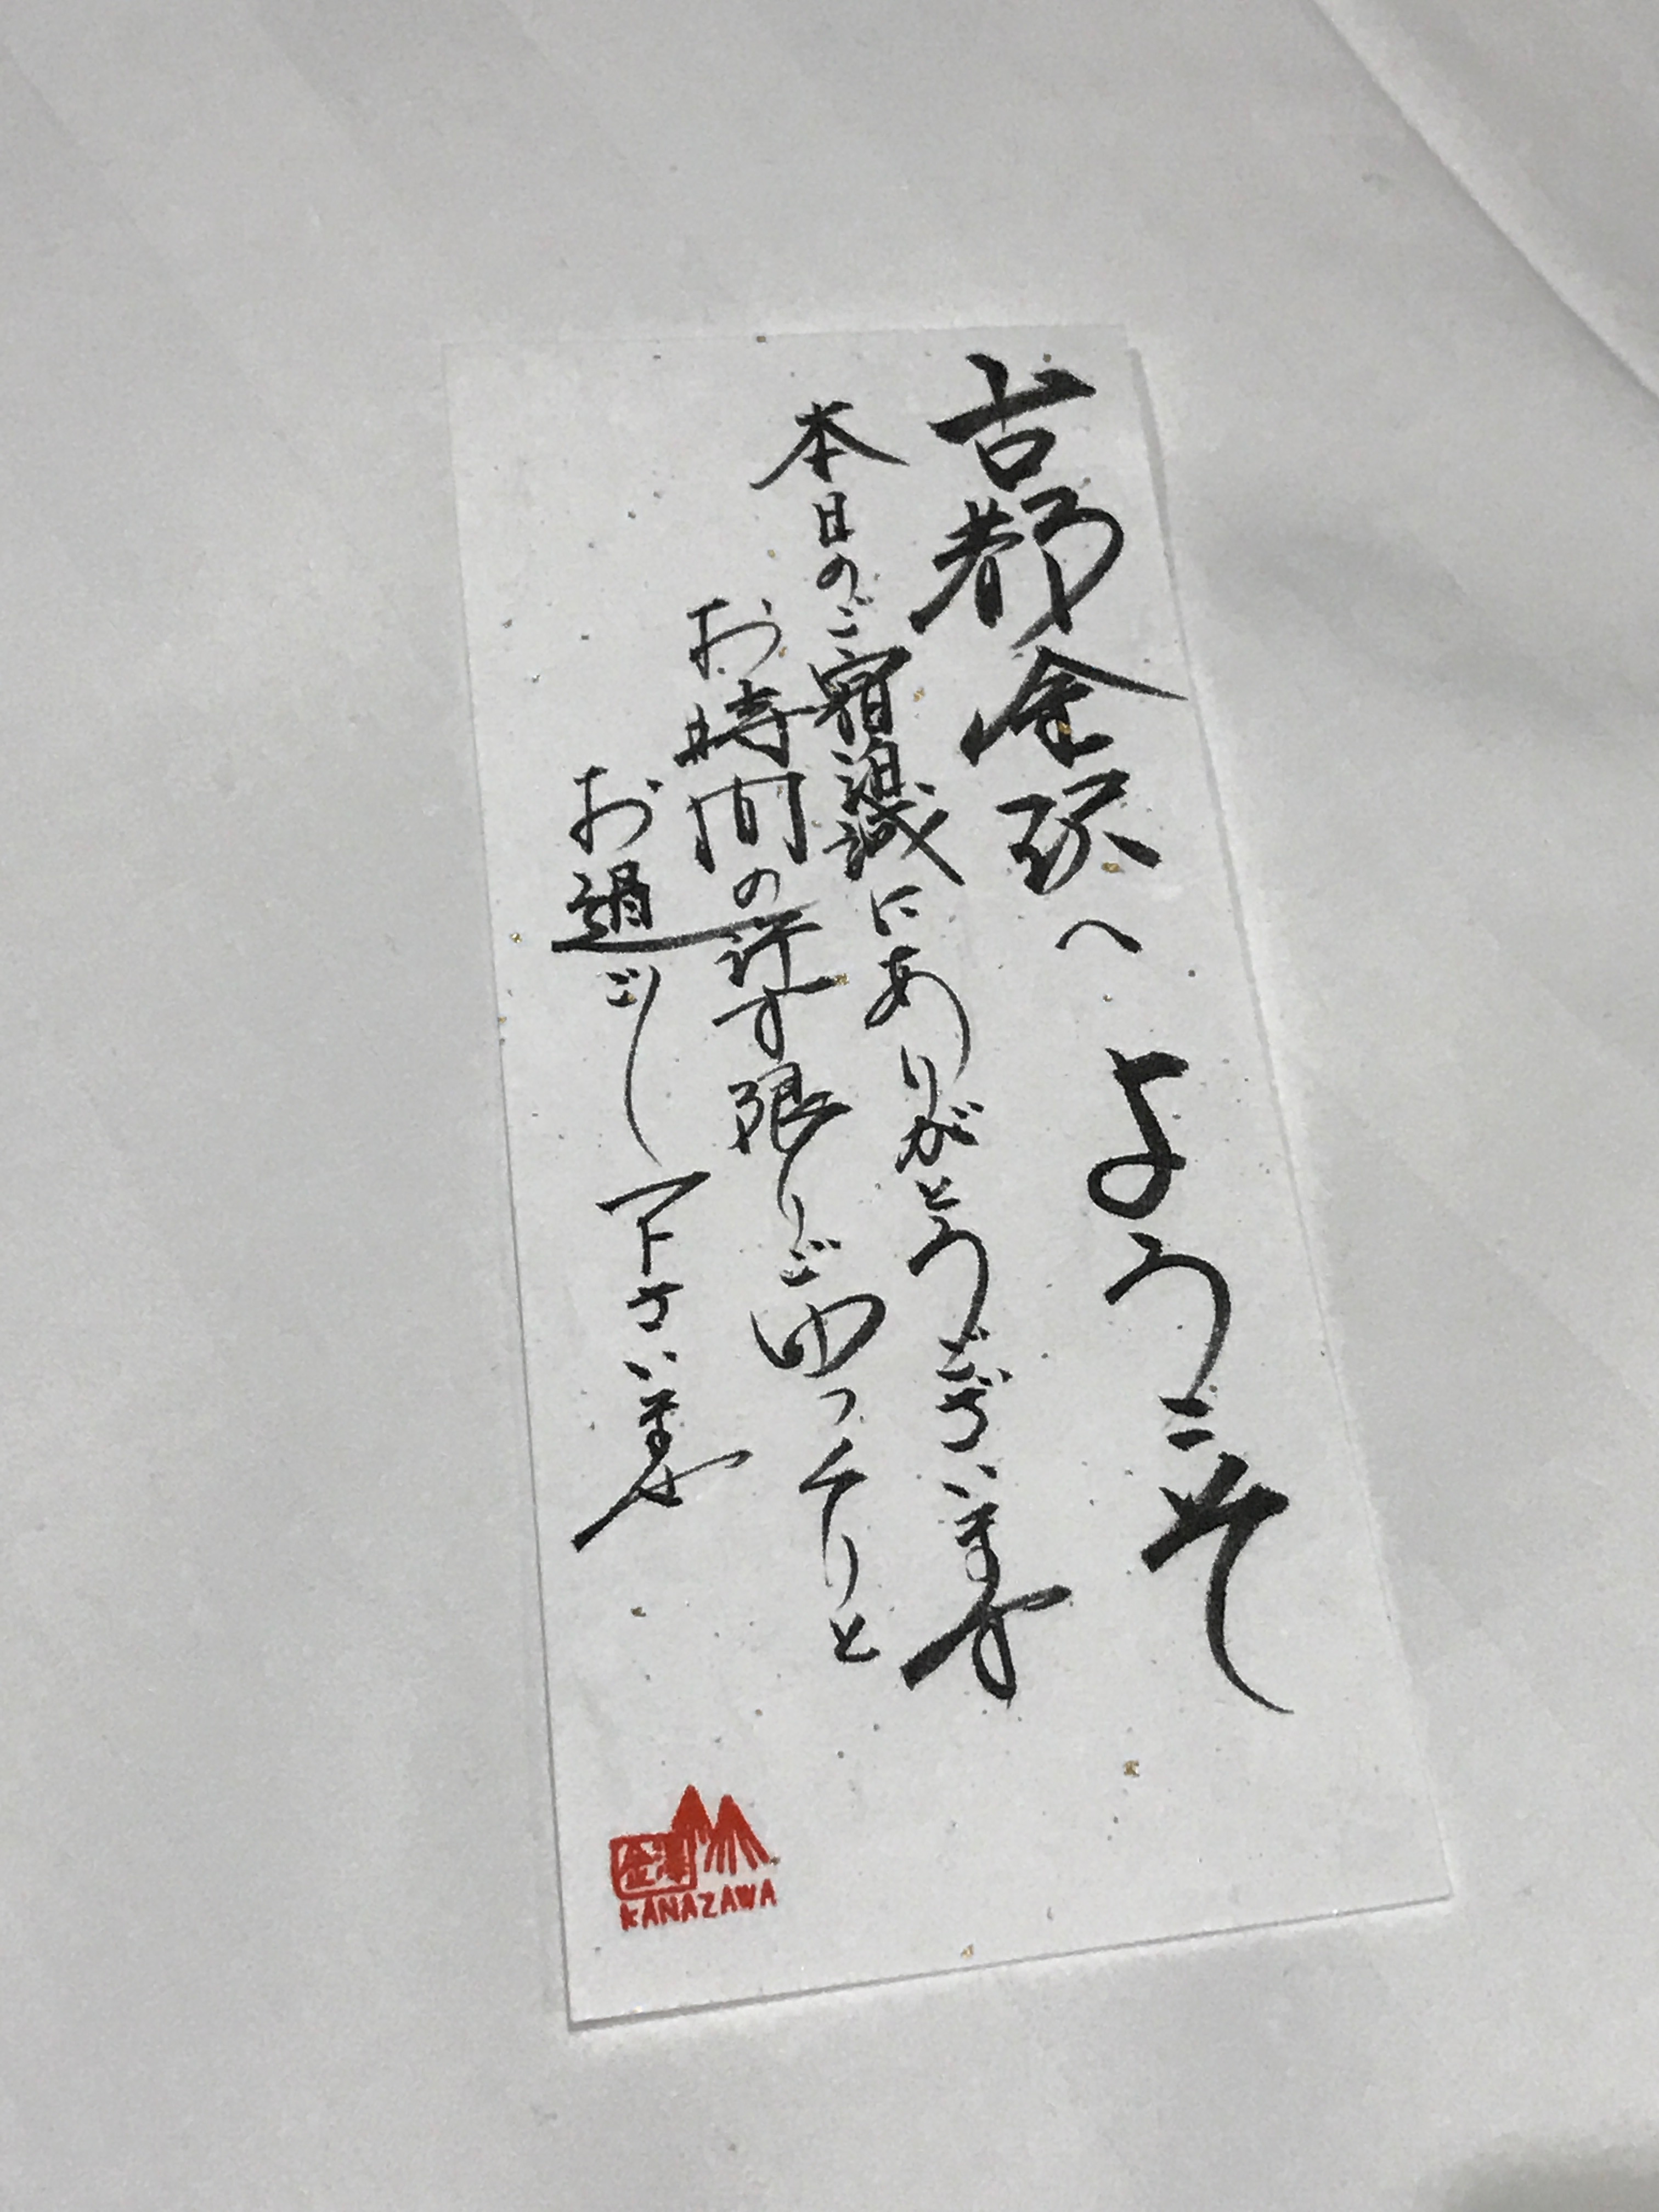 古都金沢へようこそ
本日のご宿泊誠にありがとうございます
お時間の許す限りごゆっくりと
お過ごし下さいませ
金澤
KANAZAWA